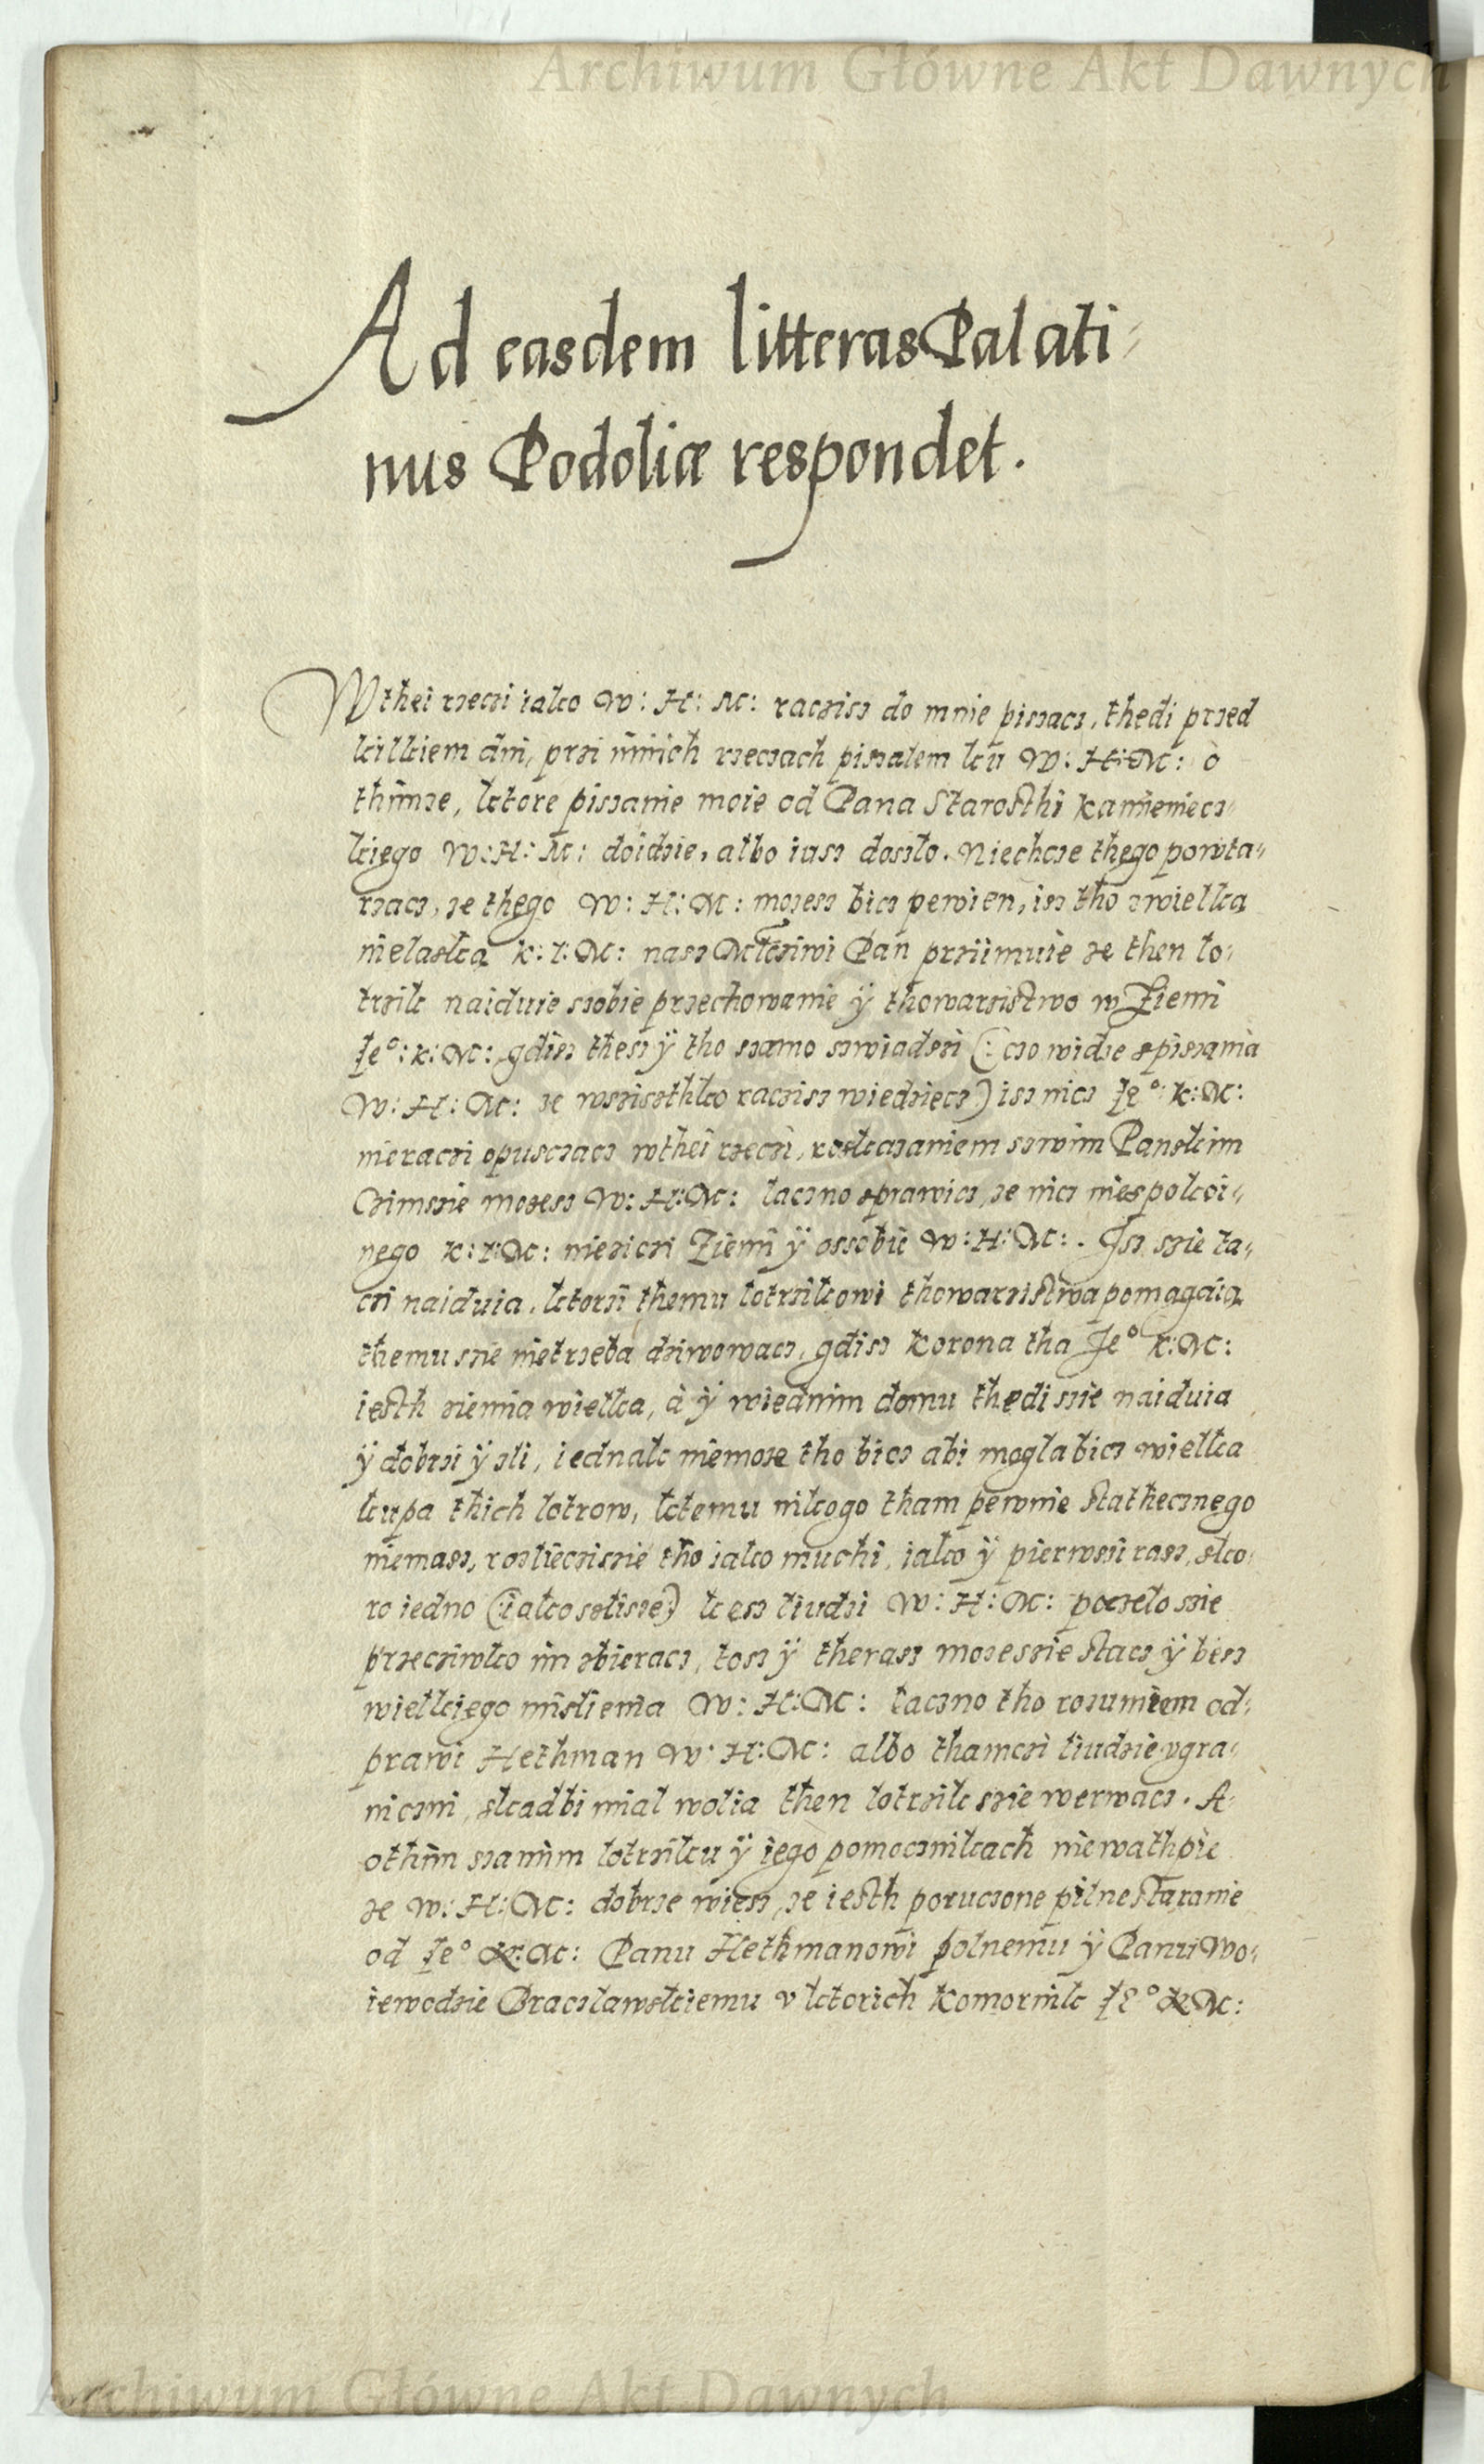 Archiwum Główne Akt Dawnych
Ad easdem litteras Palati-
nus Podoliæ respondet.
Wthei rzeczi iako W: H: M: raczisz do mnie pissacz, thedi przed
kilkiem dni, przi innich rzeczach pissalem ku W: H: M: o
thimze, ktore pissanie moie od Pana Starosthi Kamieniecz-
kiego W: H: M: doidzie, albo iusz doszlo. Niechcze thego powta-
rzacz, ze thego W: H: M: mozesz bicz pewien, isz tho zwielka
nielaska K: I: M: nasz Mcłcziwi Pan przijmuie ze then lo-
trzik naiduie ssobie przechowanie ÿ thowarzistwo w Ziemi
Je°: K: M: gdisz thesz ÿ tho ssamo szwiadczi (: czo widze spissania
W: H: M: ze wszisthko raczisz wiedziecz) isz nicz Je°: K: M:
nieraczi opusczacz wthei rzeczi, roskazaniem szwim Panskim
Czimssie mozesz W: H: M: laczno sprawicz, ze nicz niespokoi-
nego K: I: M: nieziczi Ziemi ÿ ossobie W: H: M:. Jsz ssie ta-
czi naiduia, ktorzi themu lotrzikowi thowarzistwa pomagaia
themu ssie nietrzeba dziwowacz, gdisz Korona tha Je° K: M:
iesth ziemia wielka, à ÿ wiednim domu thedi ssie naiduia
ÿ dobrzi ÿ zli, iednak niemoze tho bicz abi mogla bicz wielka
kupa thich lotrow, ktemu nikogo tham pewnie stathecznego
niemasz, rozlieczissie tho iako muchi, iako ÿ pierwszi rasz, sko-
ro iedno (: iako slisze) kesz liudzi W: H: M: poczelo ssie
przecziwko im zbieracz, tosz ÿ therasz mozessie stacz ÿ besz
wielkiego mislienia W: H: M: laczno tho rozumiem od-
prawi Hethman W: H: M: albo thamczi liudzie vgra-
niczni, skadbi mial wolia then lotrzik ssie werwacz. A
othim ssamim lotrziku ÿ iego pomocznikach niewathpie
ze W: H: M: dobrze wiesz, ze iesth poruczone pilne staranie
od Je° K: M: Panu Hethmanowi polnemu ÿ Panu Wo-
iewodzie Braczlawskiemu v ktorich Komornik Je° K: M:
Archiwum Główne Akt Dawnych